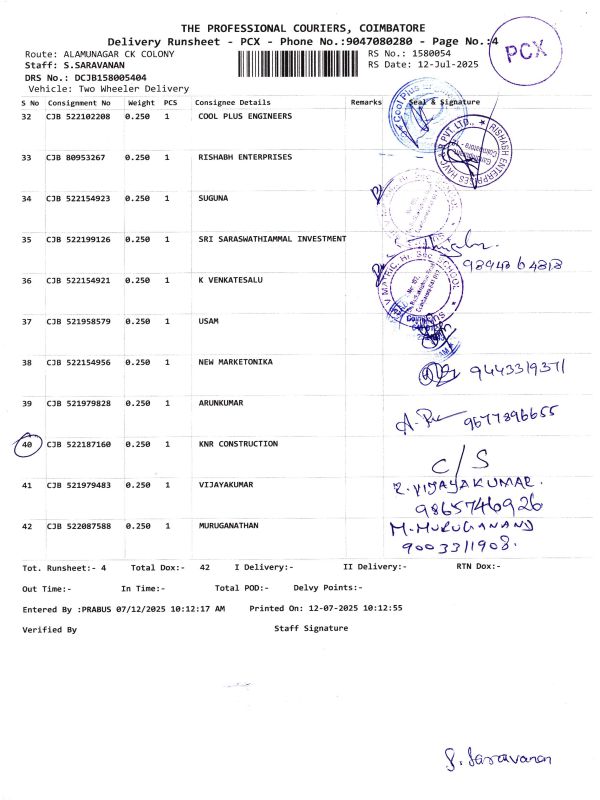 THE PROFESSIONAL COURIERS, COIMBATORE
Delivery Runsheet - PCX - Phone No.:9047080280 - Page No.:4
PCX
Route: ALAMUNAGAR CK COLONY
RS No.: 1580054
Staff: S.SARAVANAN
RS Date: 12-Jul-2025
DRS No.: DCJB158005404
Vehicle: Two Wheeler Delivery
S No Consignment No Weight PCS Consignee Details Remarks Seal & Signature
32 CJB 522102208 0.250 1 COOL PLUS ENGINEERS
33 CJB 80953267 0.250 1 RISHABH ENTERPRISES
34 CJB 522154923 0.250 1 SUGUNA
35 CJB 522199126 0.250 1 SRI SARASWATHIAMMAL INVESTMENT
36 CJB 522154921 0.250 1 K VENKATESALU
37 CJB 521958579 0.250 1 USAM
38 CJB 522154956 0.250 1 NEW MARKETONIKA 9443319371
39 CJB 521979828 0.250 1 ARUNKUMAR 9677896655
40 CJB 522187160 0.250 1 KNR CONSTRUCTION C/S
41 CJB 521979483 0.250 1 VIJAYAKUMAR R.VIJAYAKUMAR.
9865746926
42 CJB 522087588 0.250 1 MURUGANATHAN M.MURUGANAND
9003311908.
Tot. Runsheet:- 4 Total Dox:- 42 I Delivery:- II Delivery:- RTN Dox:-
Out Time:- In Time:- Total POD:- Delvy Points:-
Entered By :PRABUS 07/12/2025 10:12:17 AM Printed On: 12-07-2025 10:12:55
Verified By Staff Signature
S. Saravanan